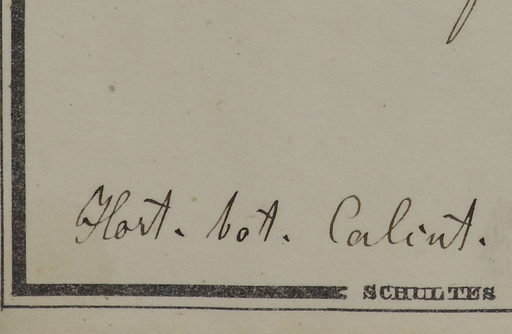 Hort. bot. Calint.
SCHULTES